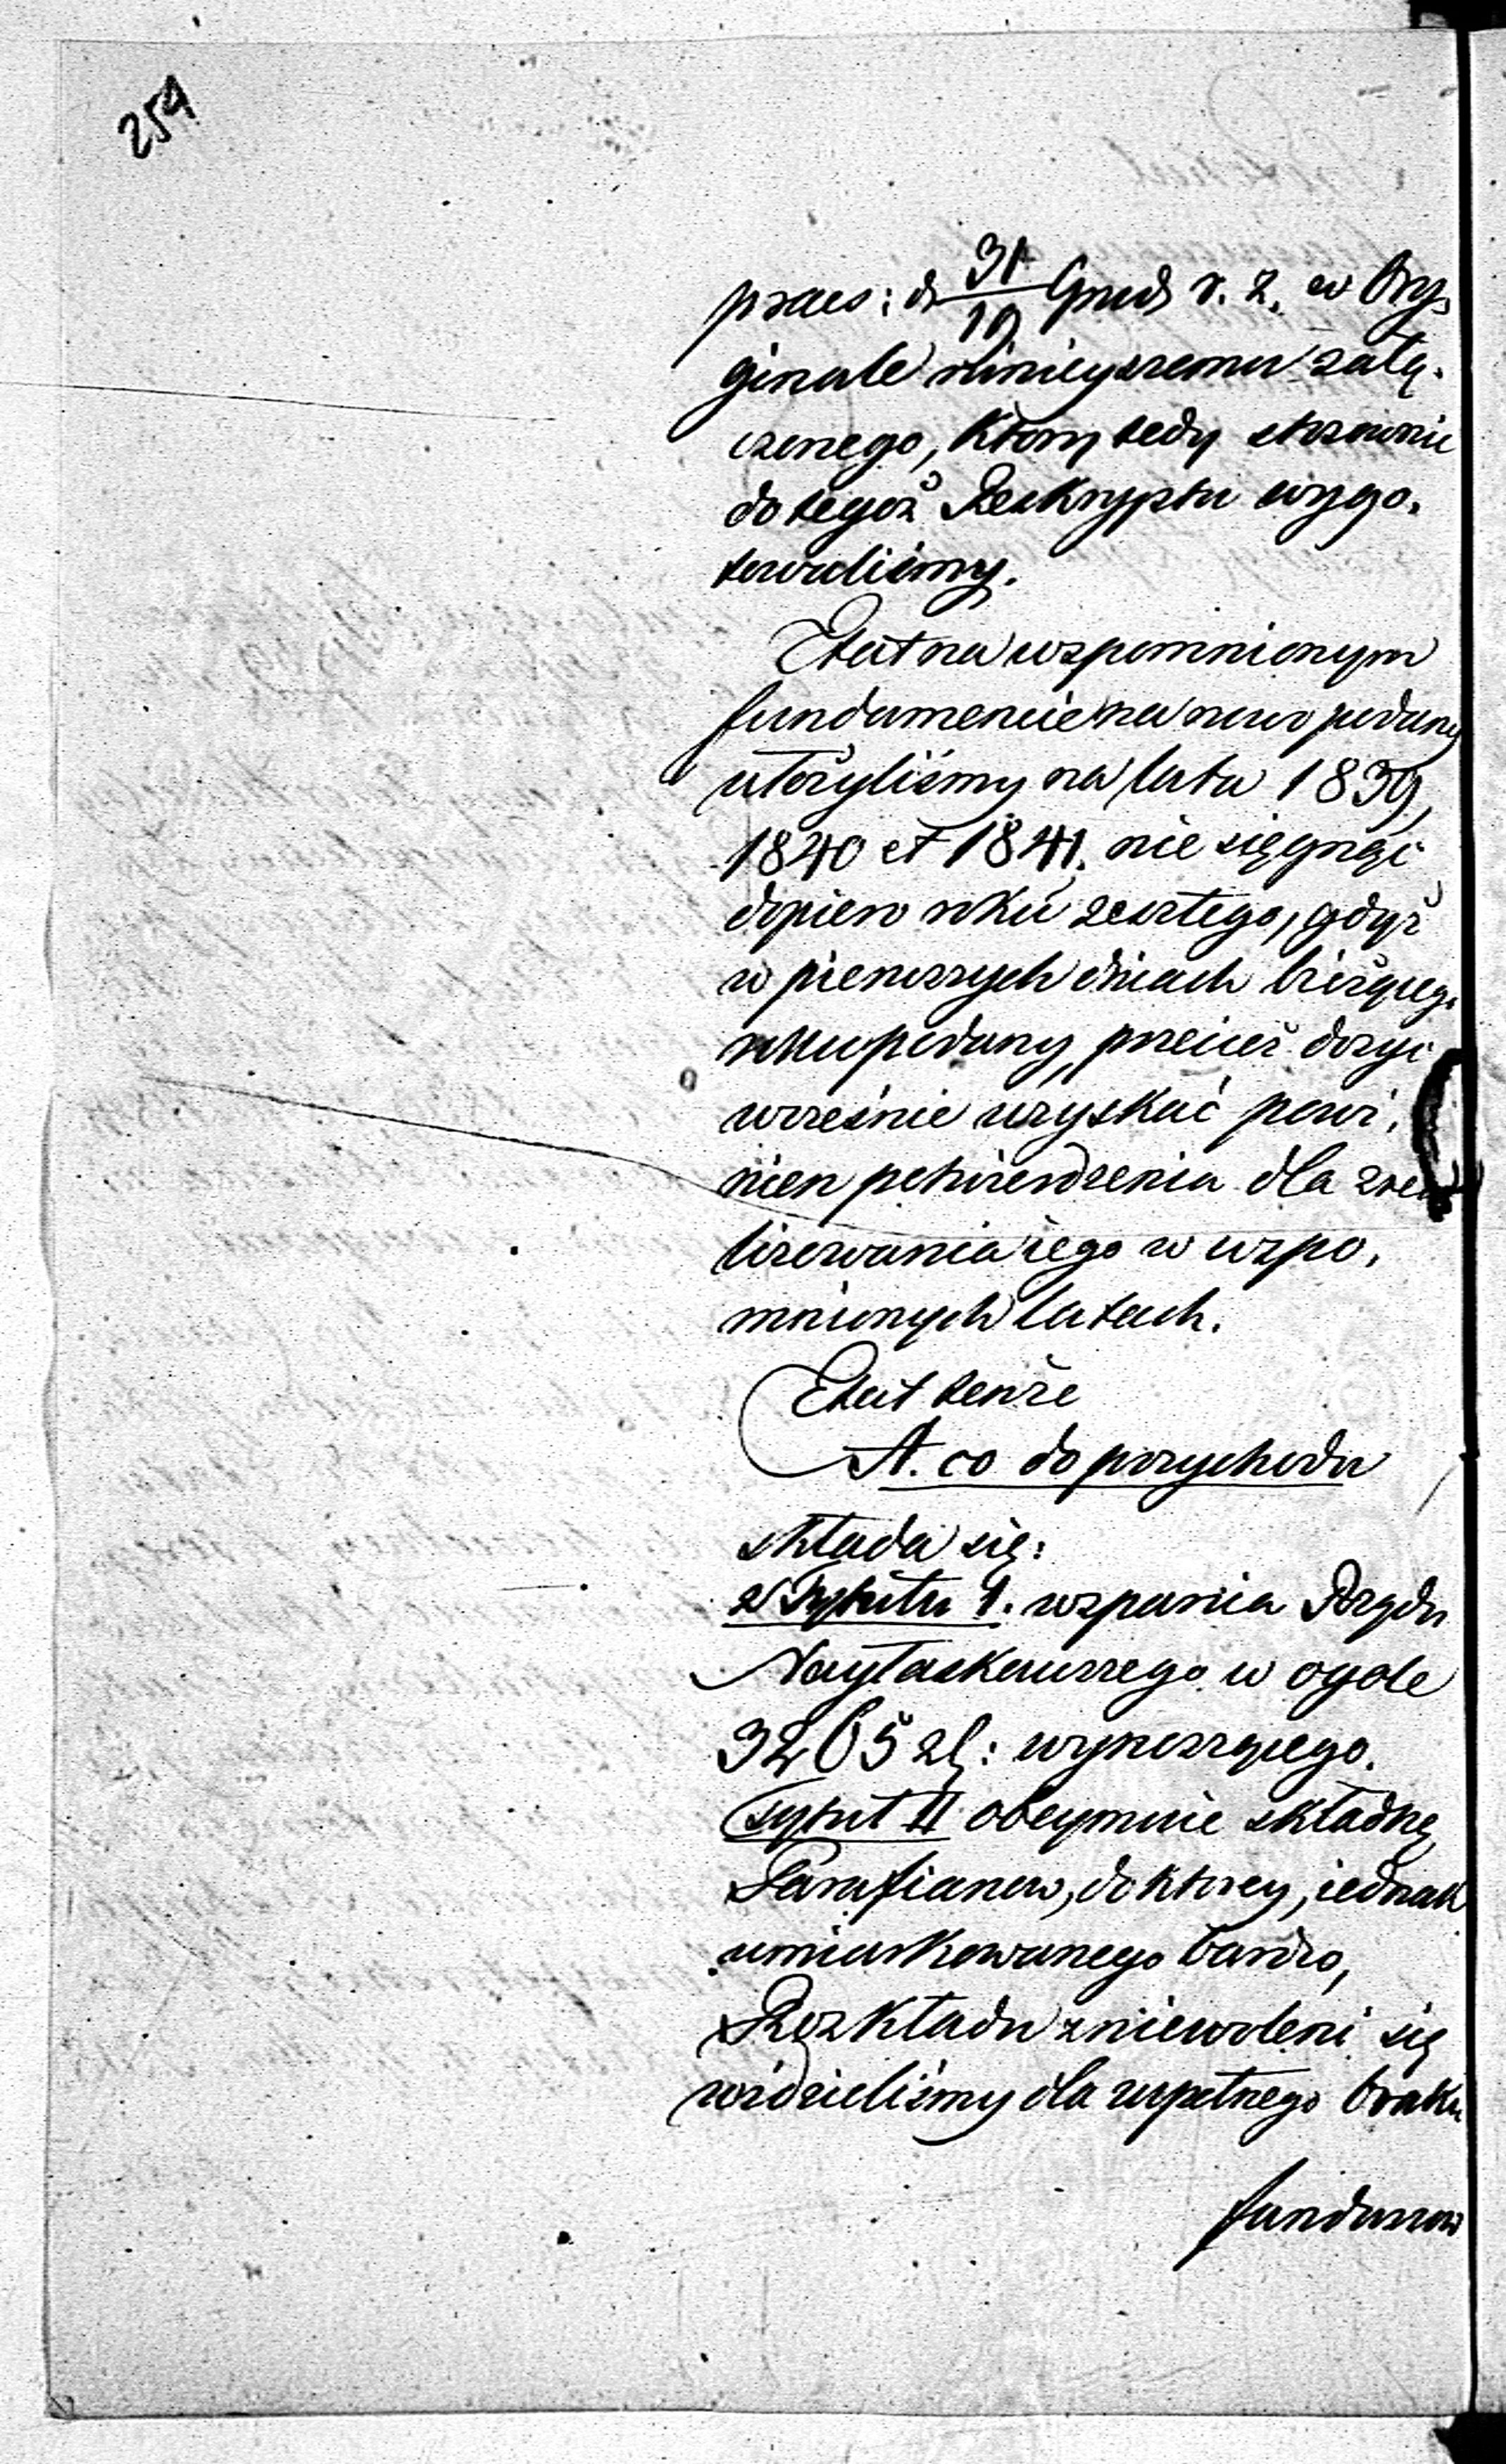 259
praes: d 31/19 Grud r. z. w Ory,
ginale ninieyszemu załą,
czonego, ktory tedy stosownie
do tegoż Reskryptu wygo,
towaliśmy.
Etat na wspomnionym
fundamencie na nowo podany
ułożyliśmy na lata 1839,
1840 et 1841. nie sięgnąć
dopiero roku zeszłego, gdyż
w pierwszych dniach bieżącego
roku podany, przecież dosyć
wcześnie uzyskać powi,
nien potwierdzenia dla zrea
lizowania iego w wspo,
mnionych latach.
Etat tenże
A. co do przychodu
składa się:
z Tytułu I. wsparcia Rządu
Nayłaskawszego w ogole
3265 zł: wynoszącego.
Tytuł II obeymuie składkę
Parafianow, do ktorey, iednak
umiarkowanego bardzo,
Rozkładu zniewoleni się
widzieliśmy dla zupełnego braku
funduszow